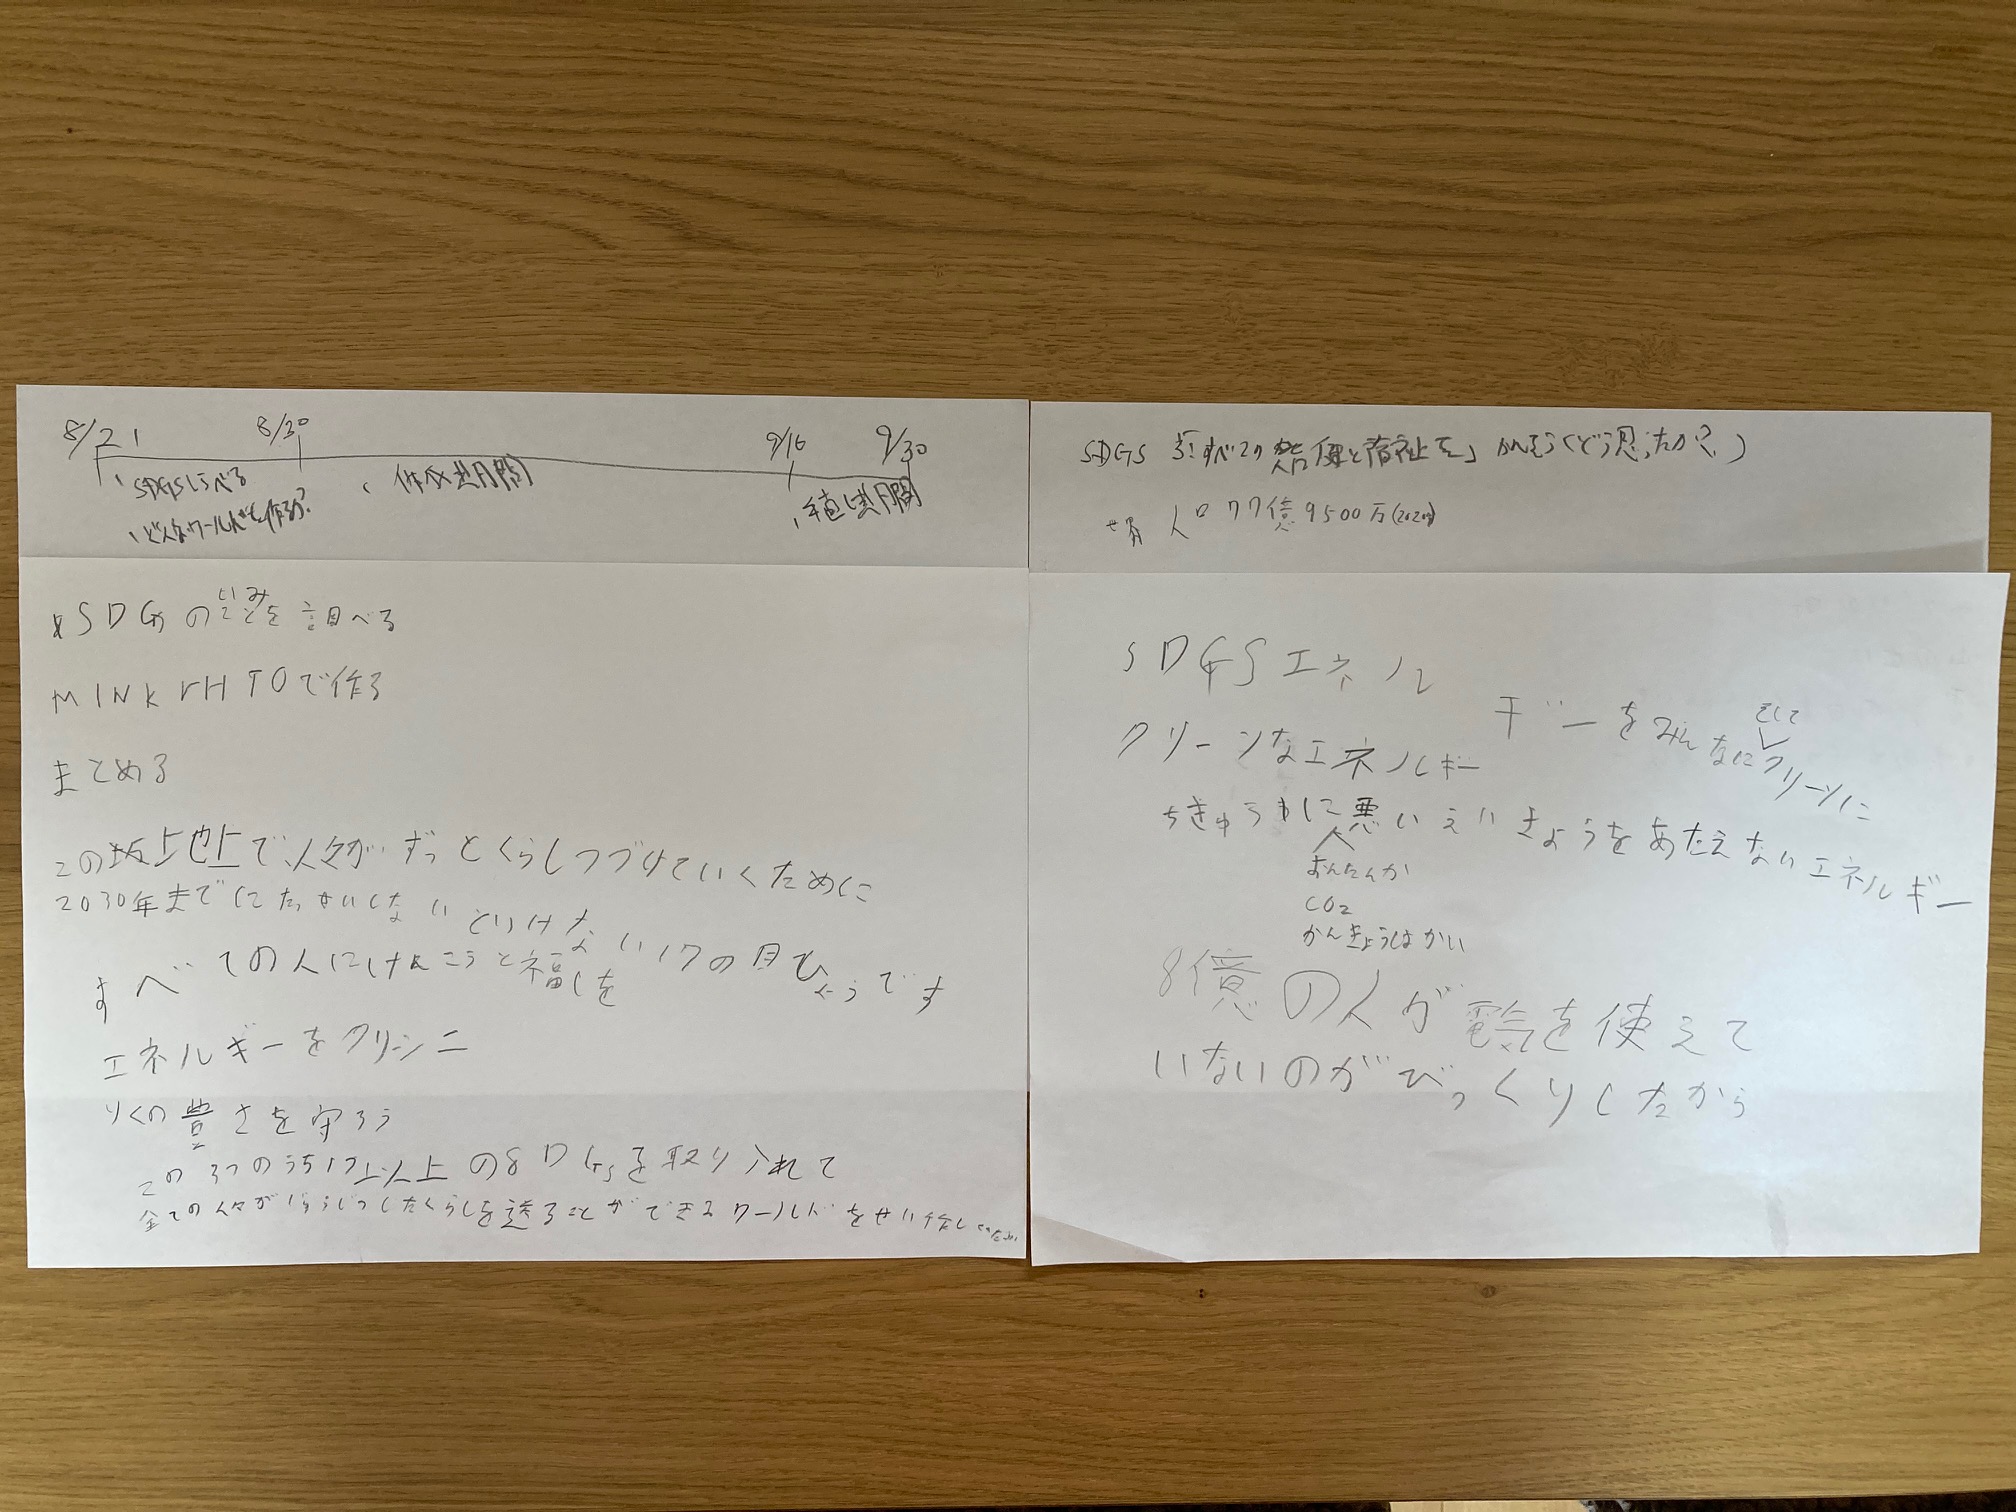 8/21 8/30 9/16 9/30
、SDGSしらべる 、作成期間 、手直し期間
、どんなワールドを作るか?
SDGsのいみを調べる
で作る
まとめる
この地上で人々がずっとくらしつづけていくために
2030年までにたっせいしないといけない17の目ひょうです
すべての人にけんこうと福しを
エネルギーをクリーンニ
りくの豊さを守ろう
この3つのうち1つ以上のSDGsを取り入れて
全ての人々がじゅうじつしたくらしを送ることができるワールドをせい作し
SDGS 「すべての人に健康と福祉を」かんそう(どう思ったか?)
人口 77億9500万(2020)
SDGSエネルギーをみんなにそしてクリーンに
クリーンなエネルギー
ちきゅうに悪いえいきょうをあたえないエネルギー
おんだんか
CO2
かんきょうはかい
8億の人が電気を使えて
いないのがびっくりしたから